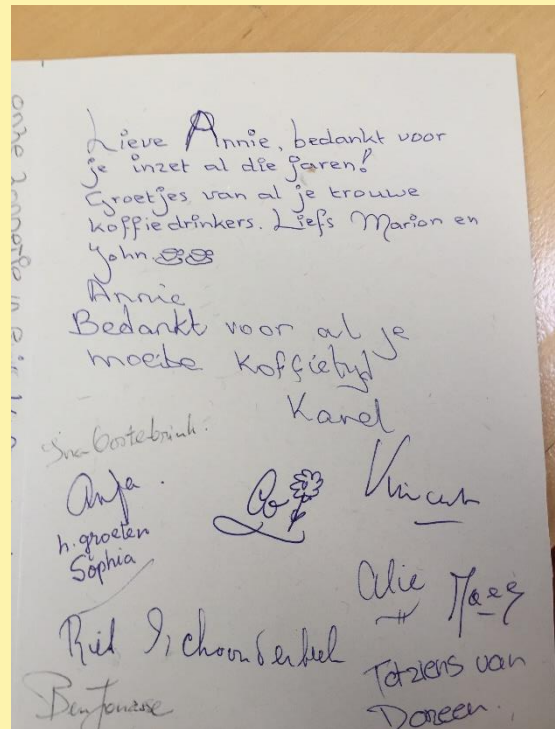 Lieve Annie, bedankt voor
je inzet al die jaren!
Groetjes van al je trouwe
koffiedrinkers. Liefs Marion en
John
Annie
Bedankt voor al je
moeite koffietijd
Karel
Oosterbrink.
Anja
Co
Vincent
h. groeten
Sophia
Alie
Riet Schoonderbeek
Totziens van
Doreen.
Ben